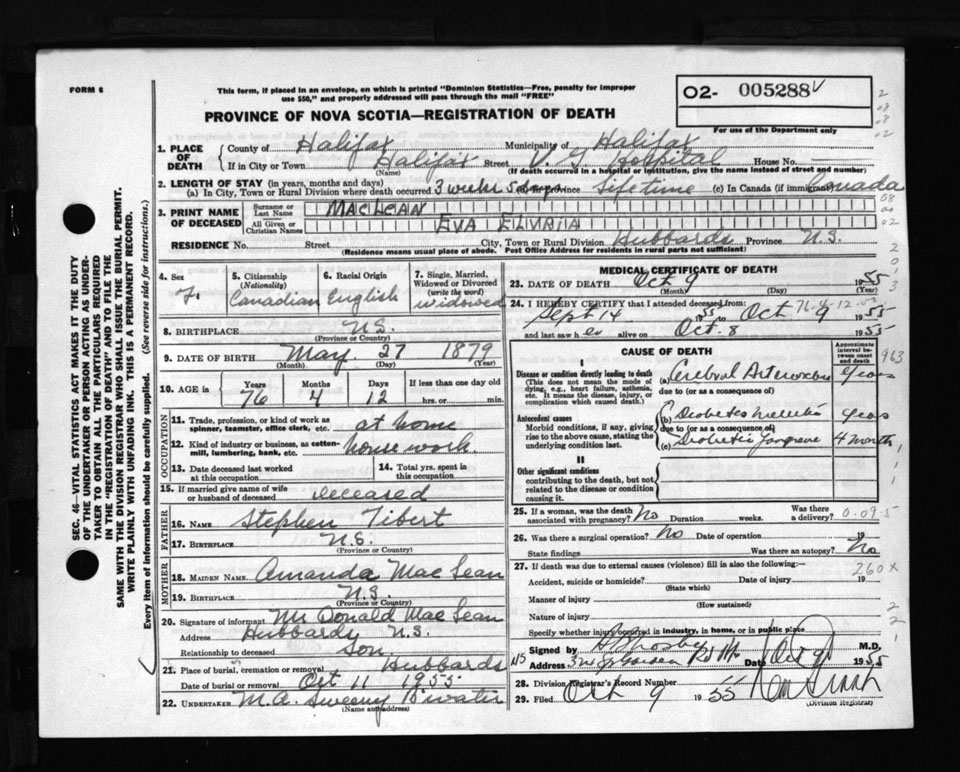 FORM 6
This form, if placed in an envelope, on which is printed "Dominion Statistics—Free, penalty for improper
use $50," and properly addressed will pass through the mail "FREE"
PROVINCE OF NOVA SCOTIA—REGISTRATION OF DEATH
O2- 005288
For use of the Department only
SEC. 46—VITAL STATISTICS ACT MAKES IT THE DUTY
OF THE UNDERTAKER OR PERSON ACTING AS UNDER-
TAKER TO OBTAIN ALL THE PARTICULARS REQUIRED
IN THE "REGISTRATION OF DEATH" AND TO FILE THE
SAME WITH THE DIVISION REGISTRAR WHO SHALL ISSUE THE BURIAL PERMIT.
WRITE PLAINLY WITH UNFADING INK. THIS IS A PERMANENT RECORD.
Every item of information should be carefully supplied. (See reverse side for instructions.)
1. PLACE OF DEATH
County of Halifax Municipality of Halifax
If in City or Town Halifax Street V. G Hospital House No. —
(Name) (If death occurred in a hospital or institution, give the name instead of street and number)
2. LENGTH OF STAY (in years, months and days)
(a) In City, Town or Rural Division where death occurred 3 weeks 5 days province Lifetime (c) In Canada (if immigrant) Canada
3. PRINT NAME OF DECEASED
Surname or Last Name MACLEAN
All Given or Christian Names EVA
RESIDENCE No. Street City, Town or Rural Division Hubbards Province N.S.
(Residence means usual place of abode. Post Office Address for residents in rural parts not sufficient)
4. Sex F.
5. Citizenship (Nationality) Canadian
6. Racial Origin English
7. Single, Married, Widowed or Divorced (write the word) widowed
8. BIRTHPLACE N.S.
(Province or Country)
9. DATE OF BIRTH May 27 1879
(Month) (Day) (Year)
10. AGE in Years 76 Months 4 Days 12 If less than one day old hrs. or min.
OCCUPATION
11. Trade, profession, or kind of work as
spinner, teamster, office clerk, etc. at home
12. Kind of industry or business, as cotton-
mill, lumbering, bank, etc. housework
13. Date deceased last worked at this occupation
14. Total yrs. spent in this occupation
15. If married give name of wife
or husband of deceased deceased
FATHER
16. NAME Stephen Tibert
17. BIRTHPLACE N.S.
(Province or Country)
MOTHER
18. MAIDEN NAME Amanda MacLean
19. BIRTHPLACE N.S.
(Province or Country)
20. Signature of informant Mr Donald MacLean
Address Hubbards N.S.
Relationship to deceased Son.
21. Place of burial, cremation or removal Hubbards
Date of burial or removal Oct 11 1955
22. UNDERTAKER M.A. Sweeny
(Name and address)
MEDICAL CERTIFICATE OF DEATH
23. DATE OF DEATH Oct 9 1955
(Month) (Day) (Year)
24. I HEREBY CERTIFY that I attended deceased from:
Sept 14 1955 to Oct 9 1955
and last saw h er alive on Oct. 8 1955
76-4-12
CAUSE OF DEATH
Approximate interval between onset and death
963
I
Disease or condition directly leading to death
(This does not mean the mode of
dying, e.g., heart failure, asthenia,
etc. It means the disease, injury, or
complication which caused death.)
(a) Cerebral years
due to (or as a consequence of)
Antecedent causes
Morbid conditions, if any, giving
rise to the above cause, stating the
underlying condition last.
(b) Diabetes Mellitus years
due to (or as a consequence of)
(c) Diabetic Gangrene 4 months
II
Other significant conditions
contributing to the death, but not
related to the disease or condition
causing it.
25. If a woman, was the death
associated with pregnancy? No Duration weeks. Was there a delivery? 0.09.5
26. Was there a surgical operation? No Date of operation 19
State findings Was there an autopsy? No
27. If death was due to external causes (violence) fill in also the following:— 260x
Accident, suicide or homicide? Date of injury 19
(State which)
Manner of injury
(How sustained)
Nature of injury
Specify whether injury occurred in industry, in home, or in public place
Signed by M.D.
Address Date Oct 9 1955
28. Division Registrar's Record Number
29. Filed Oct 9 1955
(Division Registrar)